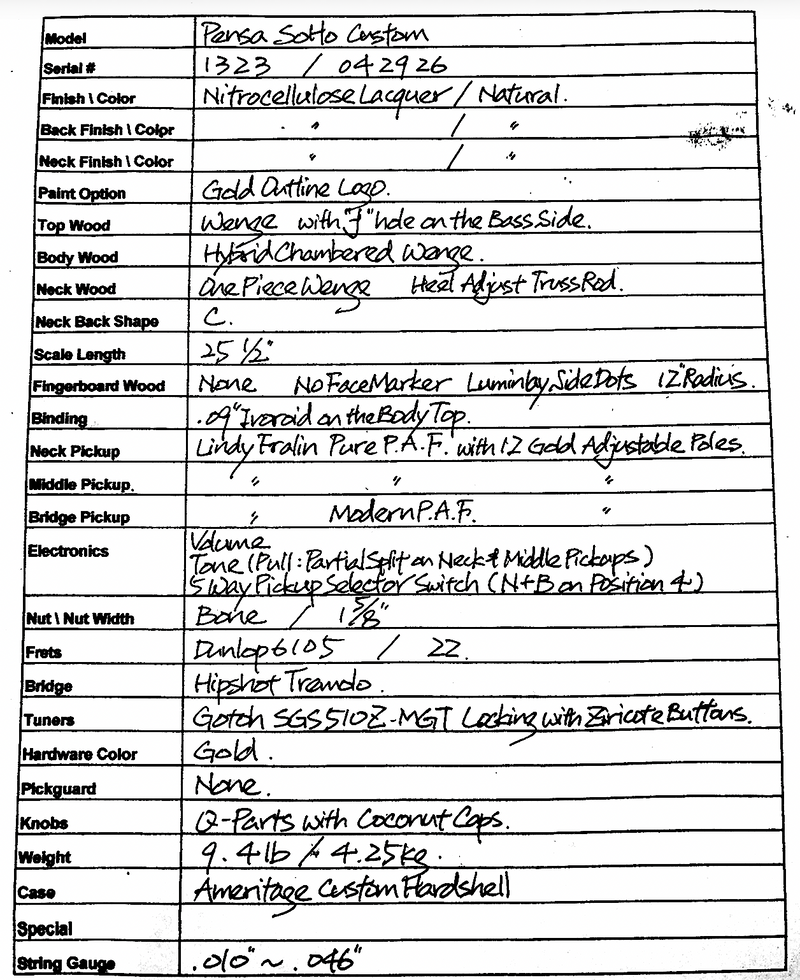 Model Pensa Sotto Custom
Serial # 1323 / 042926
Finish \ Color Nitrocellulose Lacquer / Natural.
Back Finish \ Color 〃 / 〃
Neck Finish \ Color 〃 / 〃
Paint Option Gold Outline Logo.
Top Wood Wenge with "f" hole on the Bass Side.
Body Wood Hybrid Chambered Wenge.
Neck Wood One Piece Wenge Heel Adjust Truss Rod.
Neck Back Shape C.
Scale Length 25 1/2"
Fingerboard Wood None No Face Marker Luminlay Side Dots 12" Radius.
Binding .09" Ivoroid on the Body Top.
Neck Pickup Lindy Fralin Pure P.A.F. with 12 Gold Adjustable Poles.
Middle Pickup. 〃 〃 〃
Bridge Pickup 〃 Modern P.A.F. 〃
Electronics Volume
Tone (Pull: Partial Split on Neck & Middle Pickups)
5 Way Pickup Selector Switch (N+B on Position 4)
Nut \ Nut Width Bone / 1 5/8"
Frets Dunlop 6105 / 22.
Bridge Hipshot Tremolo.
Tuners Gotoh SGS510Z-MGT Locking with Ziricote Buttons.
Hardware Color Gold.
Pickguard None.
Knobs Q-Parts with Coconut Caps.
Weight 9.4 lb / 4.25 kg.
Case Ameritage Custom Hardshell
Special
String Gauge .010" ~ .046"